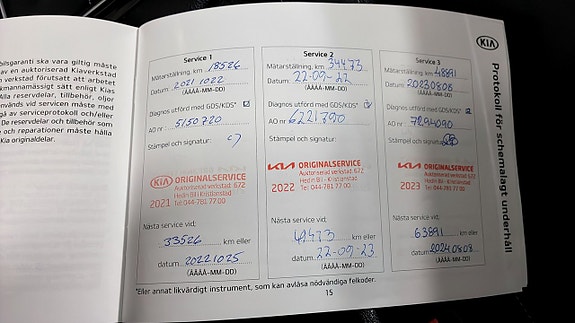 bilsgaranti ska vara giltig måste
av en auktoriserad Kiaverkstad
verkstad förutsatt att arbetet
kmannamässigt sätt enligt Kias
Alla reservdelar, tillbehör, oljor
nvänds vid servicen måste med
gå av serviceprotokoll och/eller
De reservdelar och tillbehör som
och reparationer måste hålla
Kia originaldelar.
Service 1
Mätarställning, km 18526
Datum 20211022
(ÅÅÅÅ-MM-DD)
Diagnos utförd med GDS/KDS*
AO nr 5150720
Stämpel och signatur:
KIA ORIGINALSERVICE
Auktoriserad verkstad 672
Hedin Bil - Kristianstad
2021 Tel 044-781 77 00
Nästa service vid:
33526 km eller
datum 20221025
(ÅÅÅÅ-MM-DD)
Service 2
Mätarställning, km 34473
Datum: 22-09-22
(ÅÅÅÅ-MM-DD)
Diagnos utförd med GDS/KDS*
AO nr 6221790
Stämpel och signatur:
KIA ORIGINALSERVICE
Auktoriserad verkstad 672
Hedin Bil - Kristianstad
2022 Tel 044-781 77 00
Nästa service vid:
49473 km eller
datum 22-09-23
(ÅÅÅÅ-MM-DD)
Service 3
Mätarställning, km 48891
Datum 20230808
(ÅÅÅÅ-MM-DD)
Diagnos utförd med GDS/KDS*
AO nr 7294090
Stämpel och signatur:
KIA ORIGINALSERVICE
Auktoriserad verkstad 672
Hedin Bil - Kristianstad
2023 Tel 044-781 77 00
Nästa service vid:
63891 km eller
datum 20240808
(ÅÅÅÅ-MM-DD)
*Eller annat likvärdigt instrument, som kan avläsa nödvändiga felkoder.
15
KIA
Protokoll för schemalagt underhåll